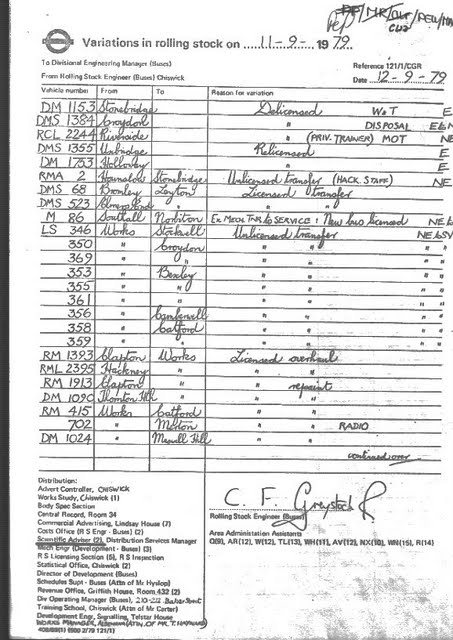 Variations in rolling stock on 11-9- 1979.
To Divisional Engineering Manager (Buses)
From Rolling Stock Engineer (Buses) Chiswick
Reference 121/1/CGR
Date 12-9-79
Vehicle number From To Reason for variation
DM 1153 Stonebridge Delicensed WoT E
DMS 1384 Croydon " DISPOSAL E&N
RCL 2244 Riverside " (PRIV. TRAINER) MOT NE
DMS 1355 Uxbridge Relicensed E
DM 1753 Holloway " E
RMA 2 Hounslow Stonebridge Unlicensed transfer (HACK. STAFF) NE
DMS 68 Bromley Leyton Licensed transfer
DMS 523 " " "
M 86 Southall Norbiton Ex Mech Tnr to SERVICE: New bus licensed NE&
LS 346 Works Stockwell Unlicensed transfer NE&SV
350 " Croydon " " " "
369 " " " " " "
353 " Bexley " " " "
355 " " " " " "
361 " " " " " "
356 " Camberwell " " " "
358 " Catford " " " "
359 " " " " " "
RM 1393 Clapton Works Licensed overhaul
RML 2395 Hackney " " "
RM 1913 Clapton " " repaint
DM 1090 Thornton Hth " " "
RM 415 Works Catford " "
702 " Merton " " RADIO
DM 1024 " Muswell Hill " "
continued over
Distribution:
Advert Controller, CHISWICK
Works Study, Chiswick (1)
Body Spec Section
Central Record, Room 34
Commercial Advertising, Lindsay House (7)
Costs Office (R S Engr - Buses) (2)
Scientific Adviser (2), Distribution Services Manager
Mech Engr (Development - Buses) (3)
R S Licensing Section (5), R S Inspection
Statistical Office, Chiswick (2)
Director of Development (Buses)
Schedules Supt - Buses (Attn of Mr Hyslop)
Revenue Office, Griffith House, Room 432 (2)
Div Operating Manager (Buses), 210-212 Baker Street
Training School, Chiswick (Attn of Mr Carter)
Development Engr, Signalling, Telstar House
C. F. Greystock
Rolling Stock Engineer (Buses)
Area Administration Assistants
Q(9), AR(12), W(12), TL(13), WH(11), AV(12), NX(10), WN(15), R(14)